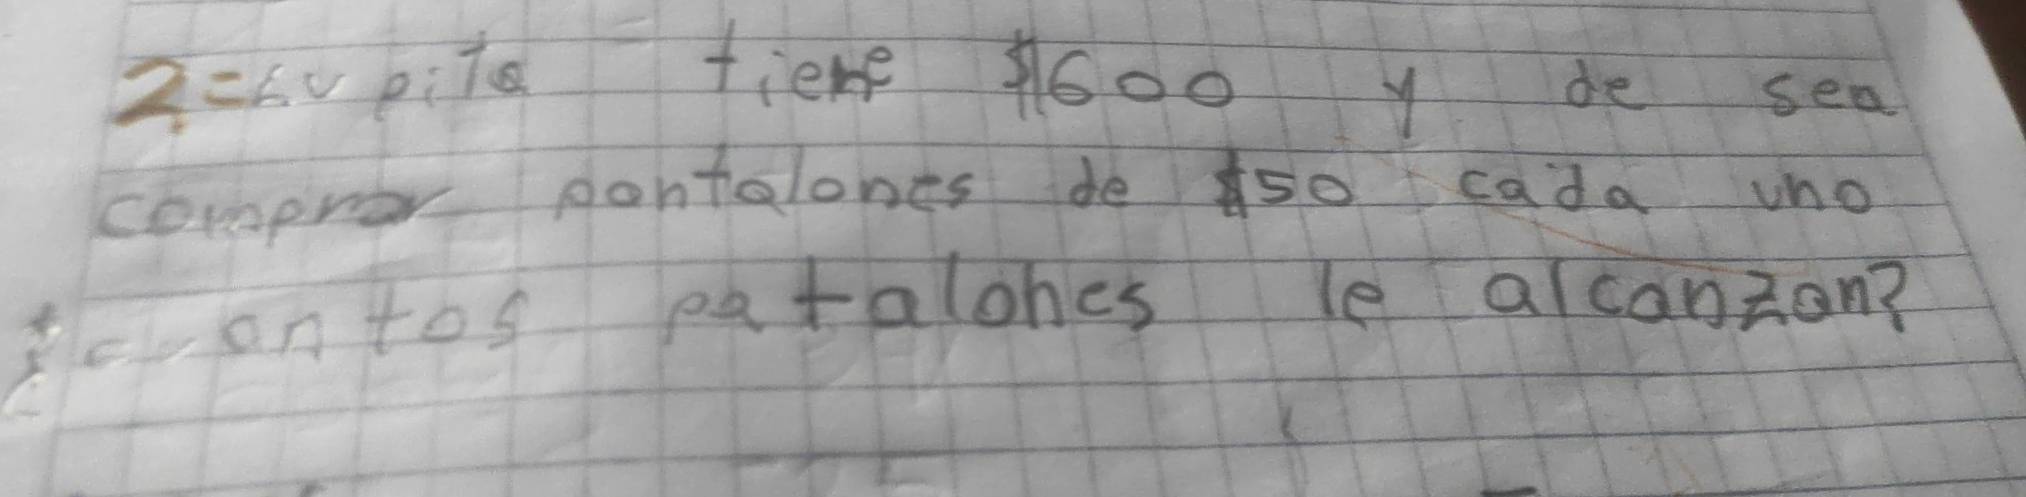 2=Lupita tiene $600 y de sea
comprar pantalones de $50 cada uno
¿cuantos patalones le alcanzan?